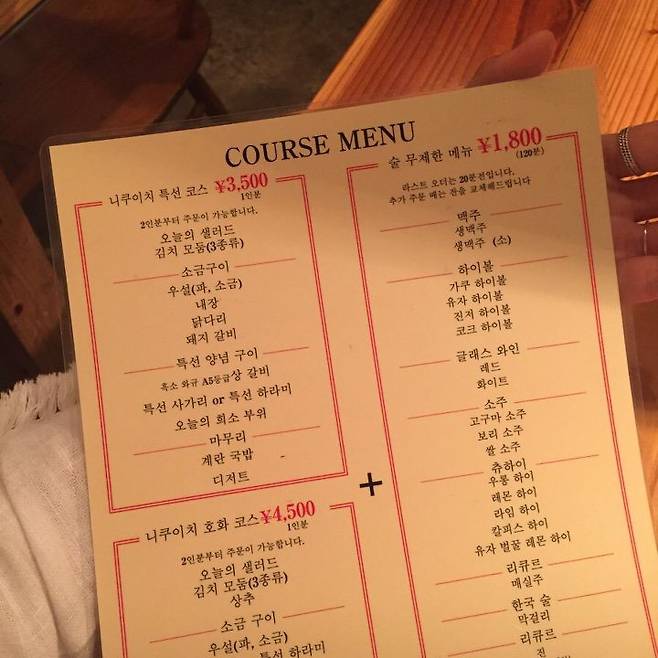 COURSE MENU
니쿠이치 특선 코스 ¥3,500
1인분
2인분부터 주문이 가능합니다.
오늘의 샐러드
김치 모둠(3종류)
소금구이
우설(파, 소금)
내장
닭다리
돼지 갈비
특선 양념 구이
흑소 와규 A5등급상 갈비
특선 사가리 or 특선 하라미
오늘의 희소 부위
마무리
계란 국밥
디저트
니쿠이치 호화 코스¥4,500
1인분
2인분부터 주문이 가능합니다.
오늘의 샐러드
김치 모둠(3종류)
상추
소금 구이
우설(파, 소금)
특선 하라미
+
술 무제한 메뉴 ¥1,800
(120분)
라스트 오더는 20분전입니다.
추가 주문 때는 잔을 교체해드립니다
맥주
생맥주
생맥주 (소)
하이볼
가쿠 하이볼
유자 하이볼
진저 하이볼
코크 하이볼
글래스 와인
레드
화이트
소주
고구마 소주
보리 소주
쌀 소주
츄하이
우롱 하이
레몬 하이
라임 하이
칼피스 하이
유자 벌꿀 레몬 하이
리큐르
매실주
한국 술
막걸리
리큐르
진